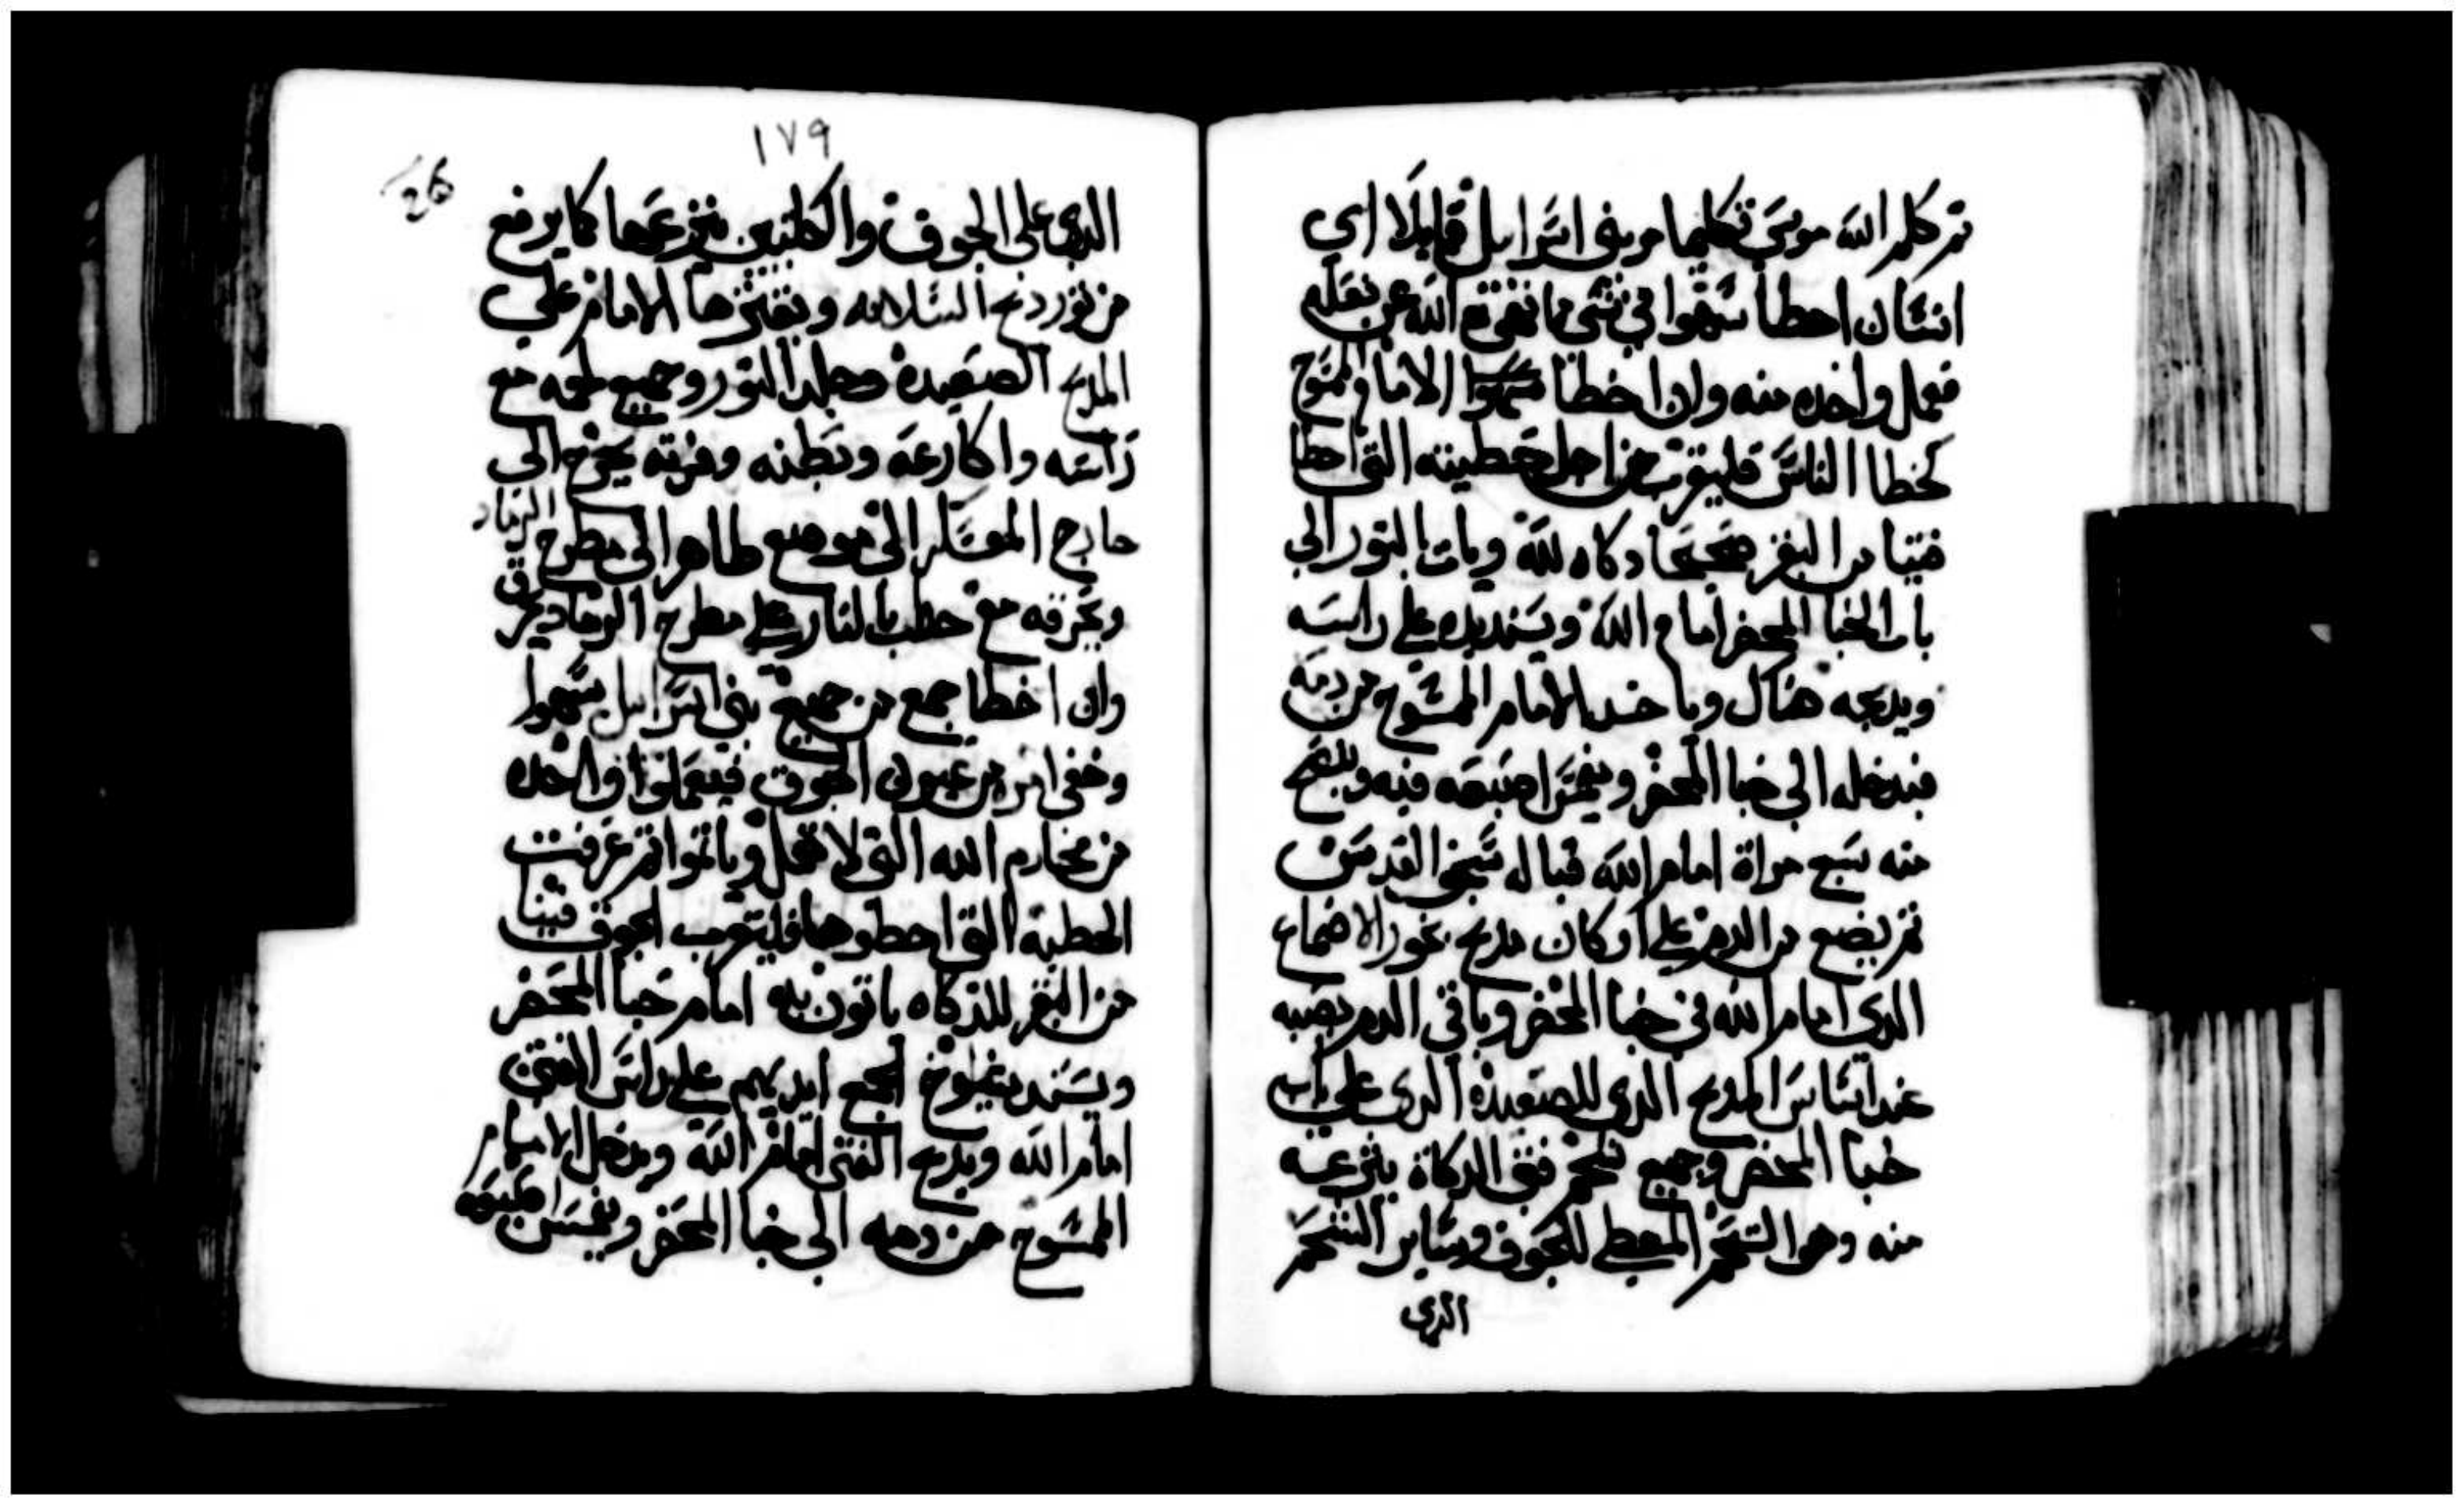 ثم كلم الله موسى تكليما مر بني اسراييل قايلا اي
انسان اخطا سهوا في شي مما نهي الله عن
فعمل واحده منه وان اخطا الامام الممسوح
كخطا الناس فليقرب من اجل خطيته التي اخطا
من البقر صحيحا دكاه لله ويات بالتور الي
باب الخبا المحضر امام الله ويسند يده علي راسه
ويدبحه هناك وياخد الامام الممسوح من دمه
فيدخله الي خبا المحضر ويغمس اصبعه فيه وينضح
منه سبع مراة امام الله قباله سجف القدس
ثم يضع من الدم علي اركان مدبح بخور الاصماغ
الدي امام الله في خبا المحضر وباقي الدم يصبه
عند اساس المدبح الدي للصعيدة الدي علي باب
خبا المحضر وجميع شحم فتى الدكاة ينزعه
منه وهو الشحم المغطي للجوف وساير الشحم
الدي
١٧٩
الدي على الجوف والكلتين ينزعها كما يرفع
من تور دبح السلامه ويقترها الامام علي
المدبح الصعيدة وجلد التور وجميع لحمه مع
راسه واكارعه وبطنه وفرته يخرج الى
خارج المعسكر الى موضع طاهر الى مطرح الرماد
ويحرقه مع حطب بالنار علي مطرح الرماد يحرق
وان اخطا جمع من جميع بني اسراييل سهوا
وخفى امر من عيون الجوق فيعملوا واحده
من محارم الله التي لا تحل وياتوا ثم عرفت
الخطية التي اخطوها فليقرب الجوق فتيا
من البقر للذكاه ياتون به امام خبا المحضر
ويسند شيوخ الجمع ايديهم علي راس الفتى
امام الله ويدبح الفتى امام الله ويدخل الامام
الممسوح من دمه الى خبا المحضر ويغمس اصبعه